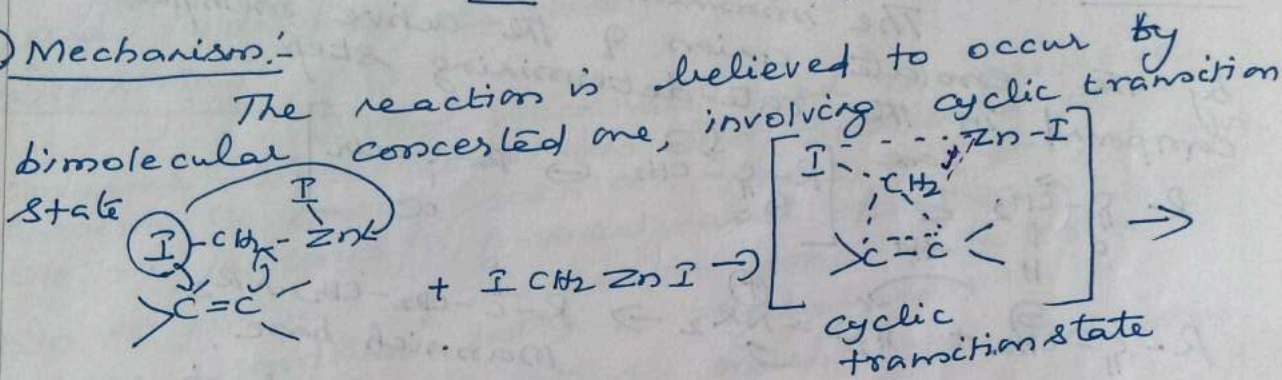 Mechanism:-
The reaction is believed to occur by
bimolecular concerted one, involving cyclic transition
state
I
I - CH2 - Zn
C=C
+ I CH2 ZnI →
I Zn-I
CH2
C=C
→
cyclic
transition state